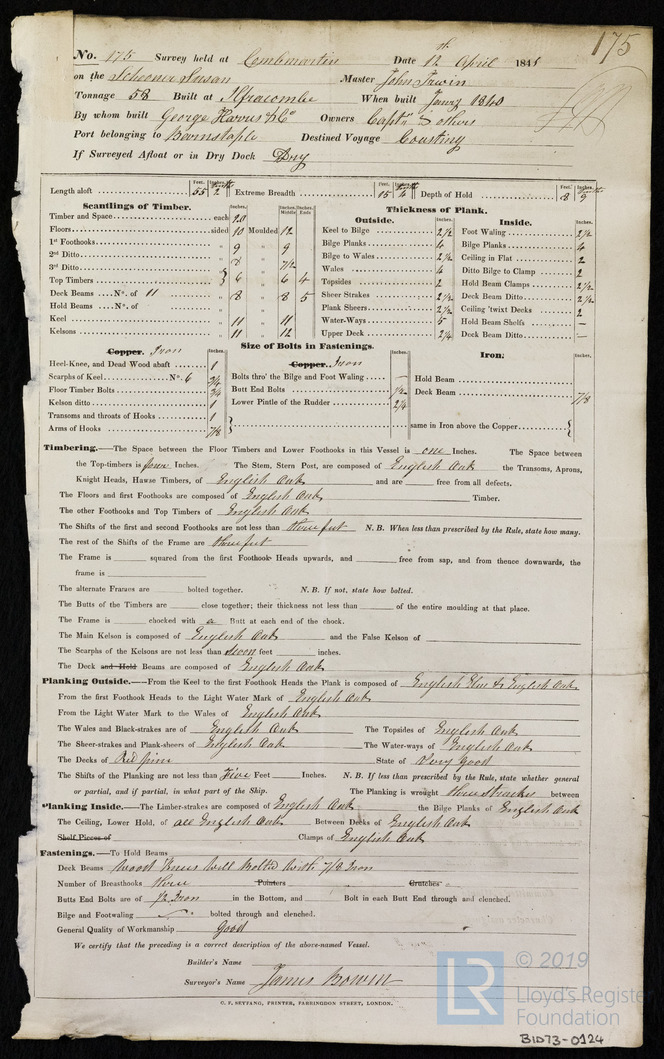 175
No. 175 Survey held at Combmartin Date 12th April 1845
on the Schooner Susan Master John Irwin
Tonnage 58 Built at Ilfracombe When built Jany 1840
By whom built George Harris & Co Owners Captn & others
Port belonging to Barnstaple Destined Voyage Coasting
If Surveyed Afloat or in Dry Dock Dry
Length aloft 55 2 Extreme Breadth 15 Depth of Hold 8 9
Feet. Inches. Feet. Inches. Feet. Inches.
Scantlings of Timber.
Inches. Inches. Middle Inches. Ends
Timber and Space each 20
Floors sided 10 Moulded 12
1st Foothooks „ 9 „ 9
2nd Ditto „ 8 „ 7½
3rd Ditto
Top Timbers } „ 6 „ 6 4
Deck Beams No. of 11 „ 8 „ 8 5
Hold Beams No. of „ „
Keel „ 11 „ 11
Kelsons „ 11 „ 12
Thickness of Plank.
Outside. Inches.
Keel to Bilge 2½
Bilge Planks 4
Bilge to Wales 2½
Wales 4
Topsides 2
Sheer Strakes 2½
Plank Sheers 2½
Water-Ways 5
Upper Deck 2¼
Inside. Inches.
Foot Waling 2½
Bilge Planks 4
Ceiling in Flat 2
Ditto Bilge to Clamp 2
Hold Beam Clamps 2½
Deck Beam Ditto 2½
Ceiling 'twixt Decks 2
Hold Beam Shelfs —
Deck Beam Ditto —
Size of Bolts in Fastenings.
Copper. Iron Inches.
Heel-Knee, and Dead Wood abaft 1
Scarphs of Keel No. 6 ¾
Floor Timber Bolts ¾
Kelson ditto 1
Transoms and throats of Hooks 1
Arms of Hooks 7/8
Copper. Iron Inches.
Bolts thro' the Bilge and Foot Waling —
Butt End Bolts ½
Lower Pintle of the Rudder 2¼
Iron. Inches.
Hold Beam
Deck Beam 7/8
same in Iron above the Copper
Timbering.—The Space between the Floor Timbers and Lower Foothooks in this Vessel is one Inches. The Space between
the Top-timbers is four Inches. The Stem, Stern Post, are composed of English Oak the Transoms, Aprons,
Knight Heads, Hawse Timbers, of English Oak and are free from all defects.
The Floors and first Foothooks are composed of English Oak Timber.
The other Foothooks and Top Timbers of English Oak
The Shifts of the first and second Foothooks are not less than three feet N.B. When less than prescribed by the Rule, state how many.
The rest of the Shifts of the Frame are three feet
The Frame is squared from the first Foothook Heads upwards, and free from sap, and from thence downwards, the
frame is
The alternate Frames are bolted together. N.B. If not, state how bolted.
The Butts of the Timbers are close together; their thickness not less than of the entire moulding at that place.
The Frame is chocked with a Butt at each end of the chock.
The Main Kelson is composed of English Oak and the False Kelson of
The Scarphs of the Kelsons are not less than seven feet inches.
The Deck and Hold Beams are composed of English Oak
Planking Outside.—From the Keel to the first Foothook Heads the Plank is composed of English Elm & English Oak
From the first Foothook Heads to the Light Water Mark of English Oak
From the Light Water Mark to the Wales of English Oak
The Wales and Black-strakes are of English Oak The Topsides of English Oak
The Sheer-strakes and Plank-sheers of English Oak The Water-ways of English Oak
The Decks of Red pine State of Very good
The Shifts of the Planking are not less than Five Feet Inches. N.B. If less than prescribed by the Rule, state whether general
or partial, and if partial, in what part of the Ship. The Planking is wrought three Strakes between
Planking Inside.—The Limber-strakes are composed of English Oak the Bilge Planks of English Oak
The Ceiling, Lower Hold, of all English Oak Between Decks of English Oak
Shelf Pieces of Clamps of English Oak
Fastenings.—To Hold Beams
Deck Beams Wood Knees Well Bolted with 7/8 Iron
Number of Breasthooks three Pointers Crutches
Butts End Bolts are of ½ Iron in the Bottom, and Bolt in each Butt End through and clenched.
Bilge and Footwaling bolted through and clenched.
General Quality of Workmanship Good
We certify that the preceding is a correct description of the above-named Vessel.
Builder's Name
Surveyor's Name James Bowen
C. F. SEYFANG, PRINTER, FARRINGDON STREET, LONDON.
LR © 2019
Lloyd's Register
Foundation
BID73-0124